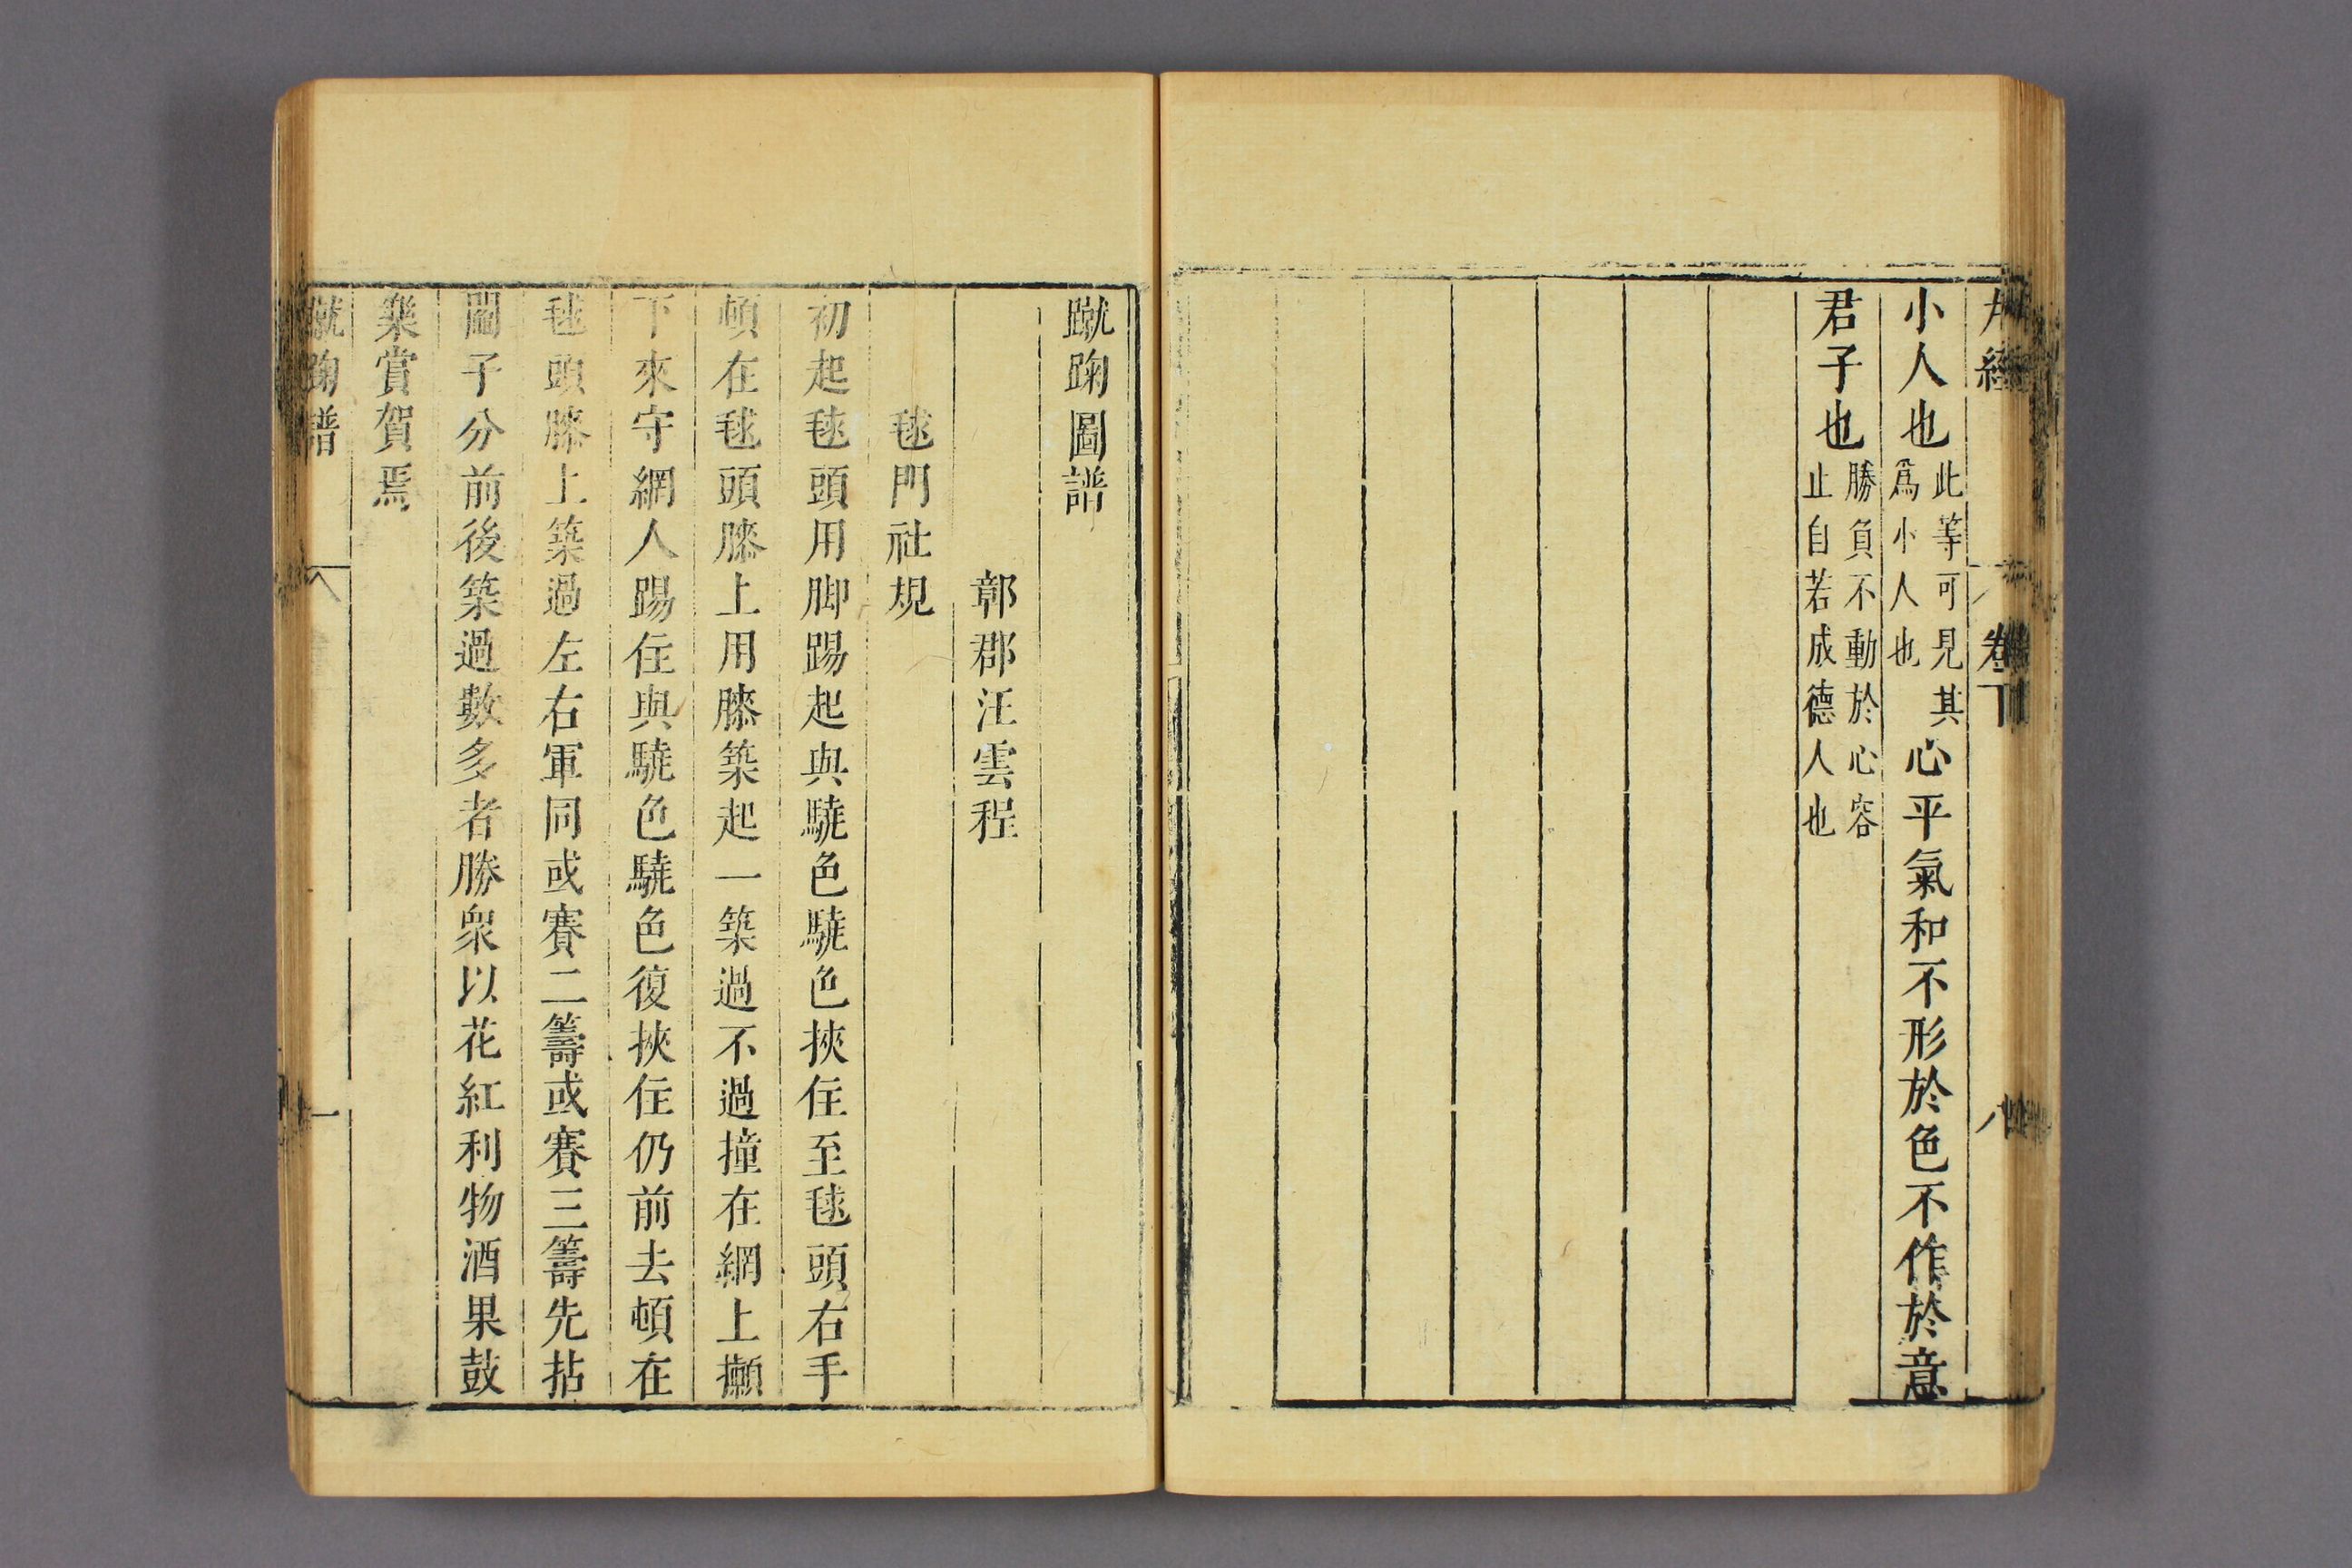 丸經 卷下 八
小人也此等可見其為小人也心平氣和不形於色不作於意
君子也勝負不動於心容止自若成德人也
蹴踘圖譜
鄣郡汪雲程
毬門社規
初起毬頭用脚踢起與驍色驍色挾住至毬頭右手
頓在毬頭膝上用膝築起一築過不過撞在網上攧
下來守網人踢住與驍色驍色復挾住仍前去頓在
毬頭膝上築過左右軍同或賽二籌或賽三籌先拈
鬮子分前後築過數多者勝衆以花紅利物酒果鼓
樂賞賀焉
蹴踘譜 一